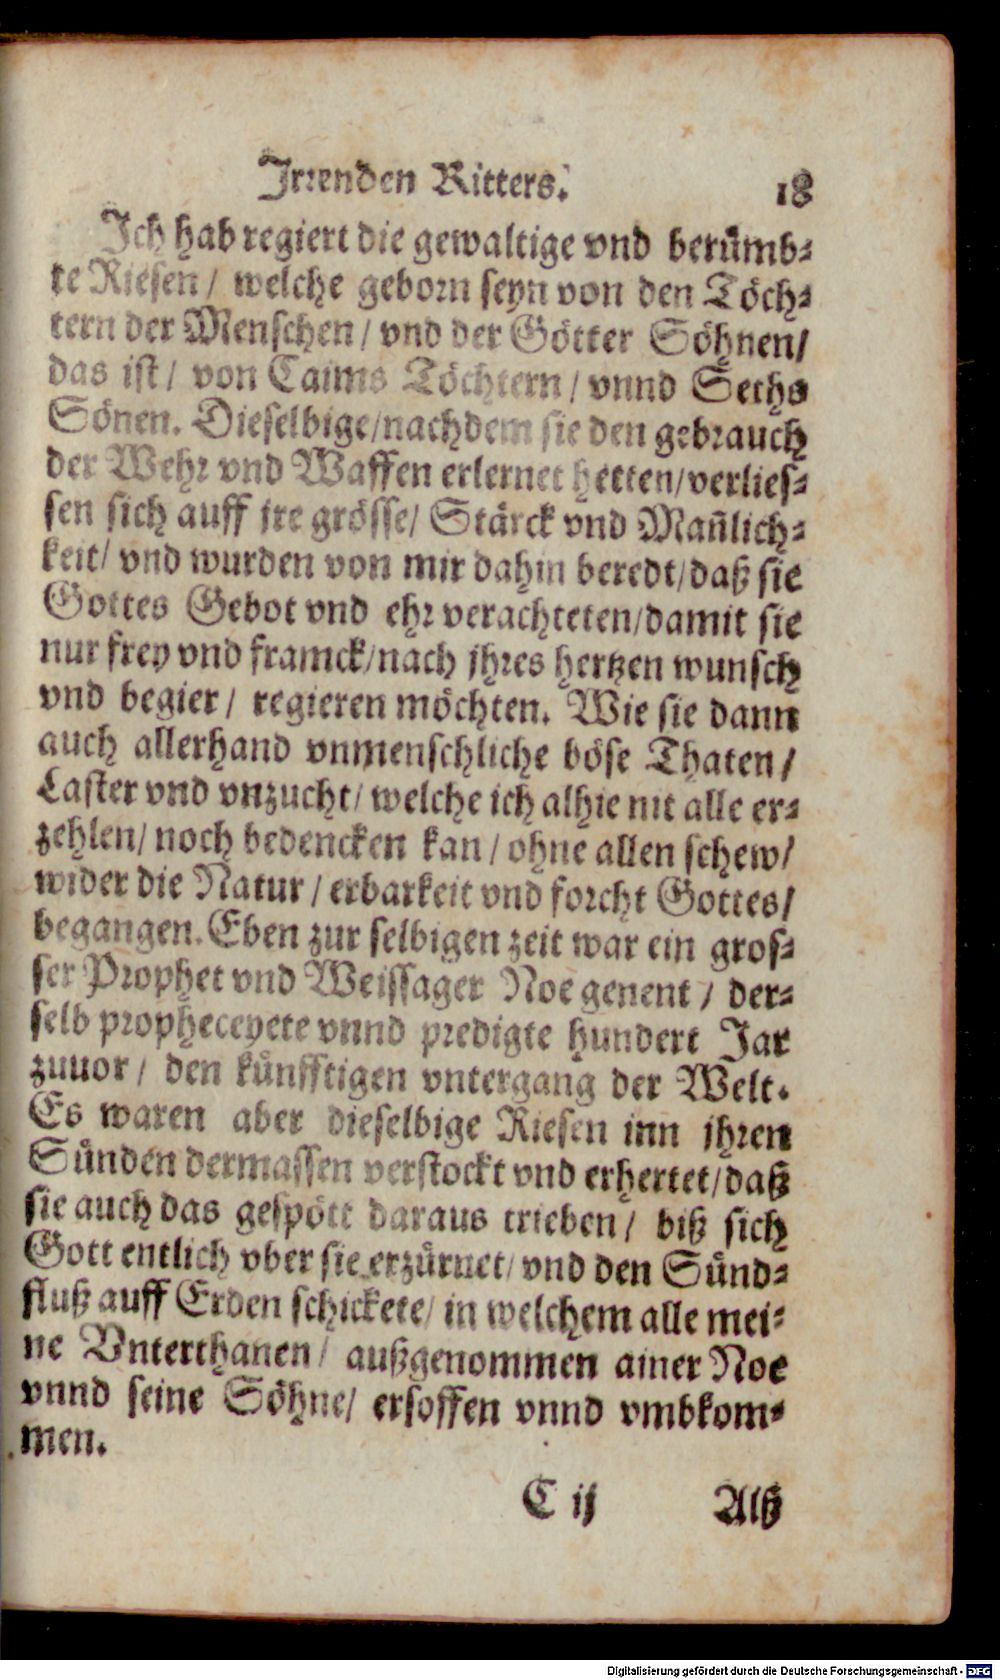 Irrenden Ritters. 18
Ich hab regiert die gewaltige vnd berümb-
te Riesen / welche geborn seyn von den Töch-
tern der Menschen / vnd der Götter Söhnen /
das ist / von Caims Töchtern / vnnd Seths
Sönen. Dieselbige / nachdem sie den gebrauch
der Wehr vnd Waffen erlernet hetten / verlies-
sen sich auff jre grösse / Stärck vnd Mañlich-
keit / vnd wurden von mir dahin beredt / daß sie
Gottes Gebot vnd ehr verachteten / damit sie
nur frey vnd franck / nach jhres hertzen wunsch
vnd begier / regieren möchten. Wie sie dann
auch allerhand vnmenschliche böse Thaten /
Laster vnd vnzucht / welche ich alhie nit alle er-
zehlen / noch bedencken kan / ohne allen schew /
wider die Natur / erbarkeit vnd forcht Gottes /
begangen. Eben zur selbigen zeit war ein gros-
ser Prophet vnd Weissager Noe genent / der-
selb propheceyete vnnd predigte hundert Jar
zuuor / den künfftigen vntergang der Welt.
Es waren aber dieselbige Riesen inn jhren
Sünden dermassen verstockt vnd erhertet / daß
sie auch das gespött daraus trieben / biß sich
Gott entlich vber sie erzürnet / vnd den Sünd-
fluß auff Erden schickete / in welchem alle mei-
ne Vnterthanen / außgenommen ainer Noe
vnnd seine Söhne / ersoffen vnnd vmbkom-
men.
C ij Alß
Digitalisierung gefördert durch die Deutsche Forschungsgemeinschaft - DFG